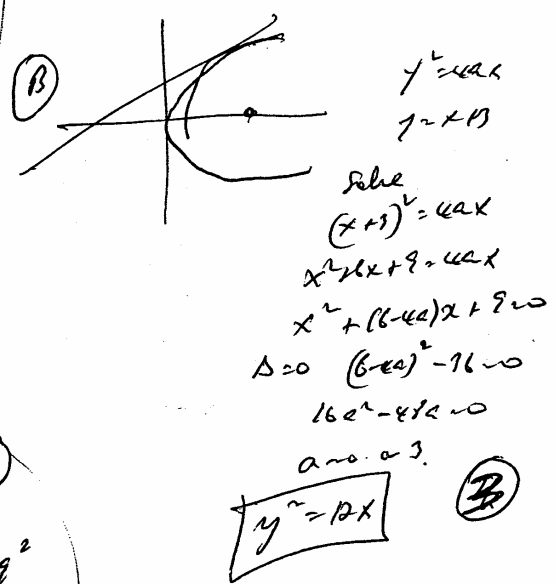 B
y² = 4ax
y = x + 3
Solve
(x+3)² = 4ax
x² + 6x + 9 = 4ax
x² + (6-4a)x + 9 = 0
Δ = 0 (6-4a)² - 36 = 0
16a² - 48a = 0
a = 0. a = 3.
y² = 12x
B
2